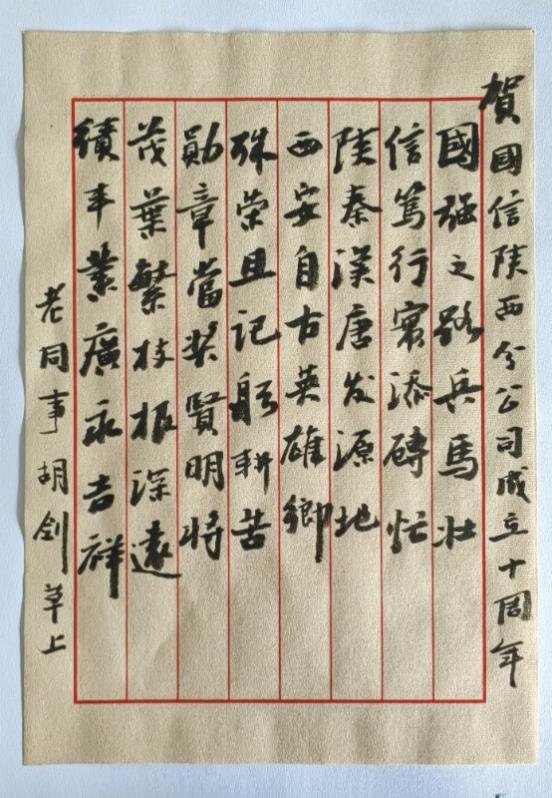 賀國信陕西分公司成立十周年
國强之路兵馬壮
信篤行寔添磚忙
陕秦漢唐发源地
西安自古英雄鄉
殊荣且记躬耕苦
勛章當奖賢明将
茂葉繁枝根深遠
績丰業廣永吉祥
老同事胡剑草上